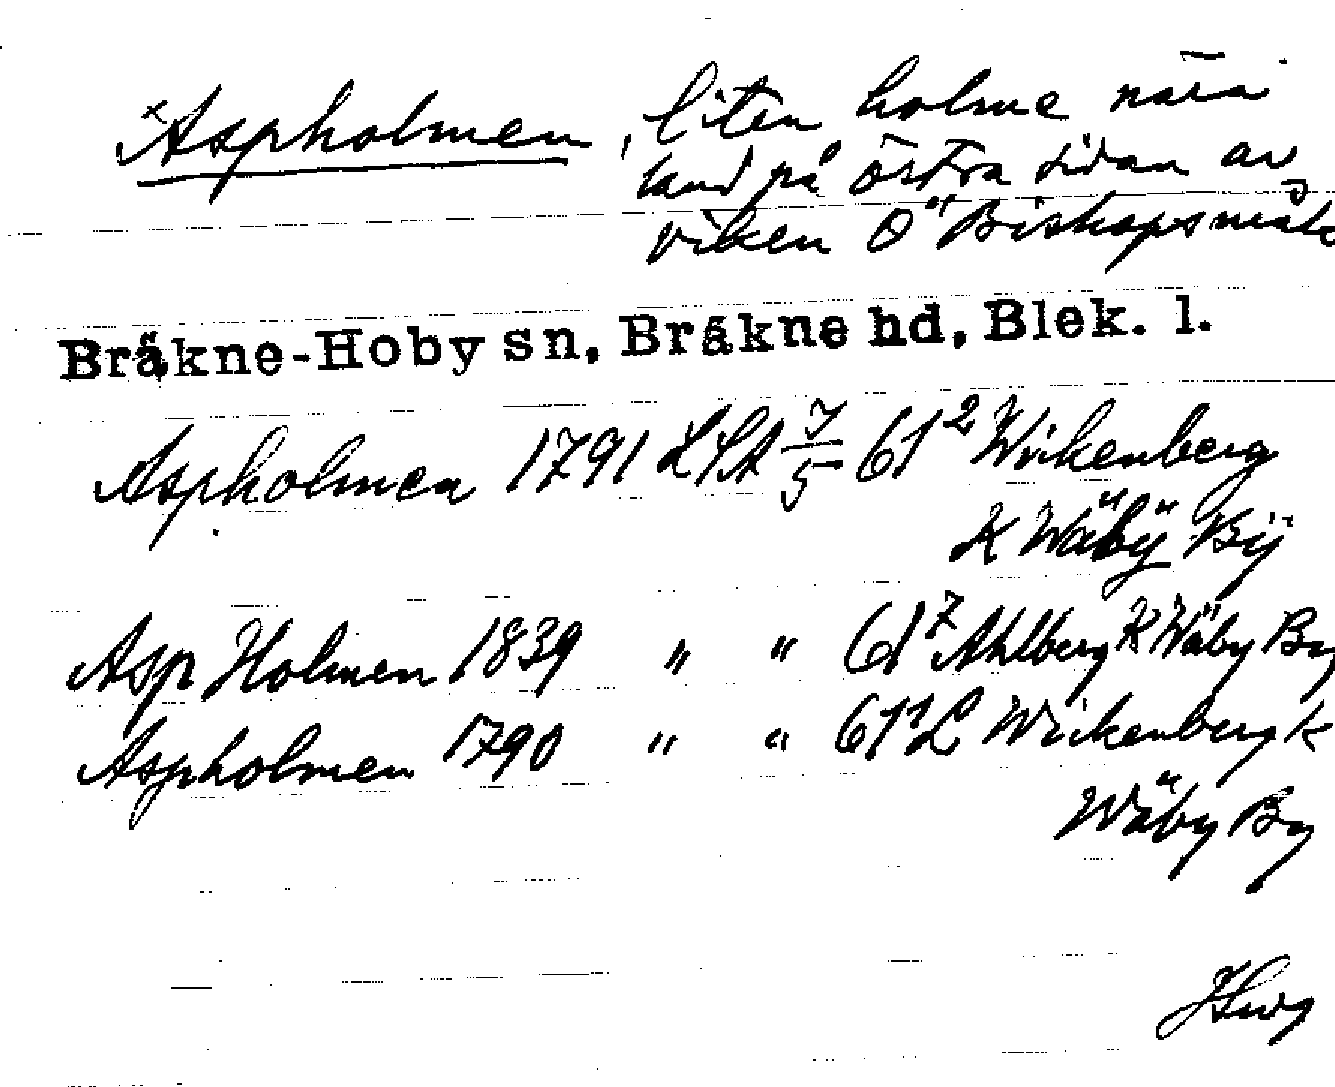 ×Aspholmen, liten holme nära
land på östra sidan av
viken O" Biskopsmåla
Bräkne-Hoby sn, Bräkne hd, Blek. l.
Aspholmen 1791 LSA 7/5 61² Wikenberg
K Wäbÿ Bÿ
Asp Holmen 1839 " " 61⁷ Ahlberg K Wäby By
Aspholmen 1790 " " 61¹ L Wikenberg K
Wäby By